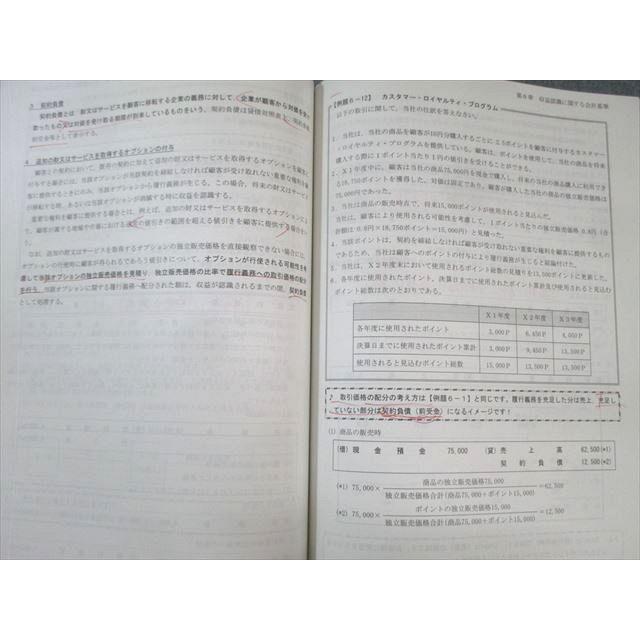 3 契約負債
契約負債とは、財又はサービスを顧客に移転する企業の義務に対して、企業が顧客から対価を受け
取ったもの又は対価を受け取る期限が到来しているものをいう。契約負債は貸借対照表上、契約負債、
前受金等として表示する。
4 追加の財又はサービスを取得するオプションの付与
顧客との契約において、既存の契約に加えて追加の財又はサービスを取得するオプションを顧客に
付与する場合には、当該オプションが当該契約を締結しなければ顧客が受け取れない重要な権利を顧
客に提供するときにのみ、当該オプションから履行義務が生じる。この場合、将来の財又はサービス
が移転する時、あるいは当該オプションが消滅する時に収益を認識する。
重要な権利を顧客に提供する場合とは、例えば、追加の財又はサービスを取得するオプションにより、
値引きの範囲を超える値引きを顧客に提供する場合
なお、追加の財又はサービスを取得するオプションの独立販売価格を直接観察できない場合には、
オプションの行使時に顧客が得られるであろう値引きについて、オプションが行使される可能性を考
慮して当該オプションの独立販売価格を見積り、独立販売価格の比率で履行義務への取引価格の配分
を行う。当該オプションに関する履行義務へ配分された額は、収益が認識されるまでの間、契約負債
として処理する。
第6章 収益認識に関する会計基準
【例題6-12】 カスタマー・ロイヤルティ・プログラム
以下の取引に関して、当社の仕訳を答えなさい。
1.当社は、当社の商品を顧客が10円分購入するごとに
・ロイヤルティ・プログラムを提供している。顧客は、ポイントを使用して、当社の商品を将来
購入する際に1ポイント当たり1円の値引きを受けることができる。
2.X1年度中に、顧客は当社の商品75,000円を現金で購入し、将来の当社の商品購入に利用でき
る18,750ポイントを獲得した。対価は固定であり、顧客が購入した当社の商品の独立販売価格は
75,000円であった。
3.当社は商品の販売時点で、将来15,000ポイントが使用されると見込んだ。
当社は、顧客により使用される可能性を考慮して、1ポイント当たりの独立販売価格を0.8円(合
計額は0.8円×18,750ポイント=15,000円)と見積った。
4.当該ポイントは、契約を締結しなければ顧客が受け取れない重要な権利を顧客に提供するもの
であるため、当社は顧客へのポイントの付与により履行義務が生じると結論付けた。
5.当社は、X2年度末において使用されるポイント総数の見積りを13,500ポイントに更新した。
6.各年度に使用されたポイント、決算日までに使用されたポイント累計及び使用されると見込む
ポイント総数は次のとおりである。
X1年度 X2年度 X3年度
各年度に使用されたポイント 3,000P 6,450P 4,050P
決算日までに使用されたポイント累計 3,000P 9,450P 13,500P
使用されると見込むポイント総数 15,000P 13,500P 13,500P
♪ 取引価格の配分の考え方は【例題6-1】と同じです。履行義務を充足した分は売上、充足し
ていない部分は契約負債(前受金)になるイメージです!
(1) 商品の販売時
(借) 現 金 預 金 75,000 (貸) 売 上 高 62,500(*1)
契 約 負 債 12,500(*2)
(*1) 75,000× 商品の独立販売価格75,000 / 独立販売価格合計(商品75,000+ポイント15,000) =62,500
(*2) 75,000× ポイントの独立販売価格15,000 / 独立販売価格合計(商品75,000+ポイント15,000) =12,500